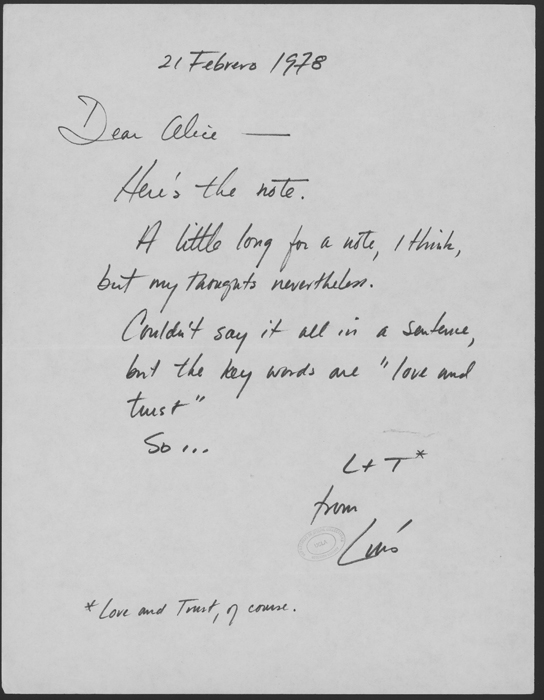 21 Febrero 1978
Dear Alice —
Here's the note.
A little long for a note, I think,
but my thoughts nevertheless.
Couldn't say it all in a sentence,
but the key words are "love and
trust"
So...
L + T*
from
Luis
*Love and Trust, of course.